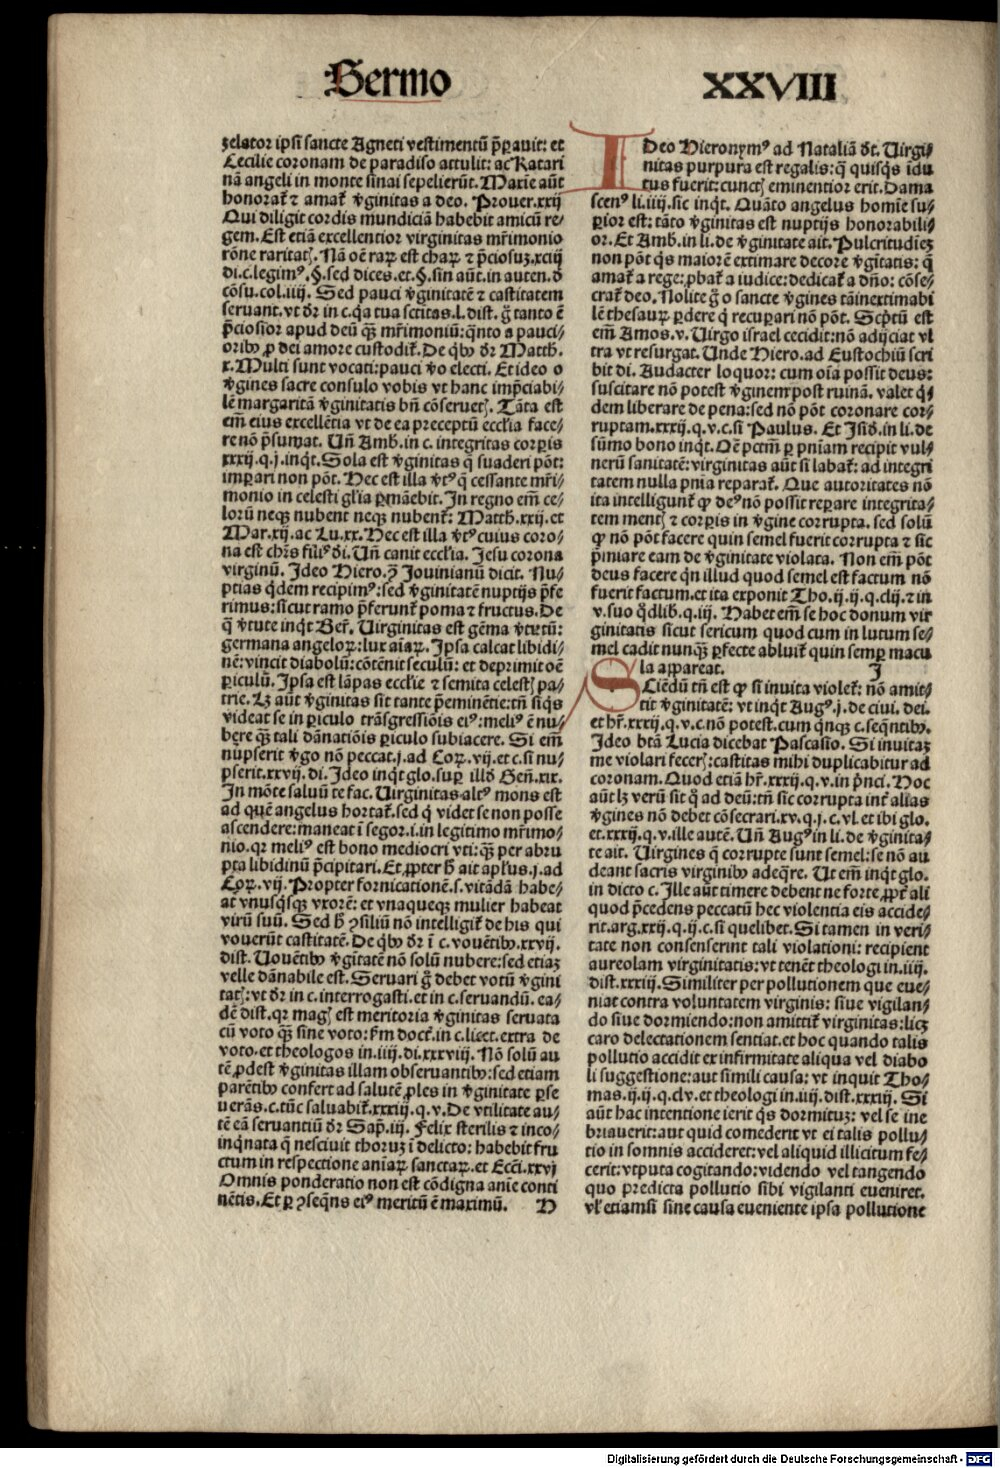 Sermo XXVIII
zelator ipsi sancte Agneti vestimentū p̄parauit: et
Cecilie coronam de paradiso attulit: ac Katari
nā angeli in monte sinai sepelierūt. Marie aūt
honorat̄ ⁊ amat̄ v̄ginitas a deo. Prouer. xxij
Qui diligit cordis mundiciā habebit amicū re⸗
gem. Est etiā excellentior virginitas mr̄imonio
rōne raritatꝭ. Nā oē raꝝ est chaꝝ ⁊ p̄ciosuꝫ. xciij
di. c. legimꝰ. §. sed dices. et. §. sin aūt. in auten. d̄
cōsu. col. iiij. Sed pauci v̄ginitatē ⁊ castitatem
seruant. vt dr̄ in c. q̄a tua sctitas. l. dist. g̊ tanto ē
p̄ciosior apud deū qꝫ mr̄imoniū: q̄nto a pauci⸗
oribꝰ ꝓ dei amore custodit̄. De qbꝰ dr̄ Matth.
x. Multi sunt vocati: pauci v̊o electi. Et ideo o
v̄gines sacre consulo vobis vt hanc imp̄ciabi⸗
lē margaritā v̄ginitatis bn̄ cōseruetꝭ. Tāta est
em̄ eius excellētia vt de ea preceptū eccl̄ia face⸗
re nō p̄sumat. Un̄ Amb. in c. integritas corꝑis
xxxij. q. j. inqt. Sola est v̄ginitas q̄ suaderi pōt:
imꝑari non pōt. Hec est illa v̄tꝰ q̄ cessante mr̄i⸗
monio in celesti gl̄ia ꝑmāebit. In regno em̄ ce⸗
lorū neqꝫ nubent neqꝫ nubent̄: Matth. xxij. et
Mar. xij. ac Lu. xx. Hec est illa v̄tꝰ cuius coro⸗
na est chr̄s filiꝰ di. Un̄ canit eccl̄ia. Jesu corona
virginū. Ideo Hiero. ꝯ Jouinianū dicit. Nu⸗
ptias qdem recipimꝰ: sed v̄ginitatē nuptijs p̄fe
rimus: sicut ramo p̄ferunt̄ poma ⁊ fructus. De
q̄ v̄tute inqt Ber̄. Uirginitas est gēma v̄tutū:
germana angeloꝝ: lux aīaꝝ. Ipsa calcat libidi⸗
nē: vincit diabolū: cōtēnit seculū: et deprimit oē
ꝑiculū. Ipsa est lāpas eccl̄ie ⁊ semita celestꝭ pa⸗
trie. Lꝫ aūt v̄ginitas sit tante p̄eminētie: tn̄ siqs
videat se in ꝑiculo trāsgressiōis eiꝰ: meliꝰ ē nu⸗
bere qꝫ tali dānatiōis ꝑiculo subiacere. Si em̄
nupserit v̄go nō peccat. j. ad Coꝝ. vij. et c. si nu⸗
pserit. xxvij. di. Ideo inqt glo. suꝑ illd̄ Gen̄. xix.
In mōte saluū te fac. Uirginitas altꝰ mons est
ad quē angelus hortat̄. sed q̇ videt se non posse
ascendere: maneat ī segor. i. in legitimo mr̄imo⸗
nio. qr meliꝰ est bono mediocri vti: qꝫ per abru
pta libidinū p̄cipitari. Et ꝓpter h̄ ait apl̄us. j. ad
Coꝝ. vij. Propter fornicationē. s. vitādā habe⸗
at vnusqsqꝫ vxorē: et vnaqueqꝫ mulier habeat
virū suū. Sed h̄ ꝯsiliū nō intelligit̄ de his qui
vouerūt castitatē. De qbꝰ dr̄ ī c. vouētibꝰ. xxvij.
dist. Uouētibꝰ v̄gītatē nō solū nubere: sed etiaꝫ
velle dānabile est. Seruari g̊ debet votū v̄gini
tatꝭ: vt dr̄ in c. interrogasti. et in c. seruandū. ea⸗
dē dist. qr magꝭ est meritoria v̄ginitas seruata
cū voto qꝫ sine voto: s̄m doct̄. in c. licet. extra de
voto. et theologos in. iiij. di. xxxviij. Nō solū au
tē ꝓdest v̄ginitas illam obseruantibꝰ: sed etiam
parētibꝰ confert ad salutē ꝓles in v̄ginitate ꝑse
uerās. c. tūc saluabit̄. xxxiij. q. v. De vtilitate au⸗
tē eā seruantiū dr̄ Sap̄. iij. Felix sterilis ⁊ inco⸗
inqnata q̄ nesciuit thoruꝫ ī delicto: habebit fru
ctum in respectione aīaꝝ sanctaꝝ. et Ecci. xxvj
Omnis ponderatio non est cōdigna anīe conti
nētis. Et ꝑ ꝯseqns eiꝰ meritū ē maximū. H
IDeo Hieronymꝰ ad Nataliā dt. Uirgi⸗
nitas purpura est regalis: q̄ quisqs īdu
tus fuerit: cunctꝭ eminentior erit. Dama
scenꝰ li. iiij. sic inqt. Quāto angelus homīe su⸗
ꝑior est: tāto v̄ginitas est nuptijs honorabili⸗
or. Et Amb. in li. de v̄ginitate ait. Pulcritudīeꝫ
non pōt qs maiorē extimare decore v̄gītatis: q̄
amat̄ a rege: ꝓbat̄ a iudice: dedicat̄ a dn̄o: cōse⸗
crat̄ deo. Nolite g̊ o sancte v̄gines tā inextimabi
lē thesauꝝ ꝑdere q̇ recuꝑari nō pōt. Scptū est
em̄ Amos. v. Uirgo israel cecidit: nō adijciat vl
tra vt resurgat. Unde Hiero. ad Eustochiū scri
bit di. Audacter loquor: cum oīa possit deus:
suscitare nō potest v̄ginem post ruinā. valet q̇⸗
dem liberare de pena: sed nō pōt coronare cor⸗
ruptam. xxxij. q. v. c. si Paulus. Et Isid. in li. de
sūmo bono inqt. Oē pctm̄ ꝑ pn̄iam recipit vul⸗
nerū sanitatē: virginitas aūt si labat̄: ad integri
tatem nulla pn̄ia reparat̄. Que autoritates nō
ita intelligunt̄ ꝙ deꝰ nō possit reꝑare integrita⸗
tem mentꝭ ⁊ corꝑis in v̄gine corrupta. sed solū
ꝙ nō pōt facere quin semel fuerit corrupta ⁊ sic
p̄miare eam de v̄ginitate violata. Non em̄ pōt
deus facere qn̄ illud quod semel est factum nō
fuerit factum. et ita exponit Tho. ij. ij. q. clij. ⁊ in
v. suo qdlib. q. iij. Habet em̄ se hoc donum vir
ginitatis sicut sericum quod cum in lutum se⸗
mel cadit nunqꝫ ꝑfecte abluit̄ quin semꝑ macu
la appareat. I
SCiēdū tn̄ est ꝙ si inuita violet̄: nō amit⸗
tit v̄ginitatē: vt inqt Augꝰ. j. de ciui. dei.
et hr̄. xxxij. q. v. c. nō potest. cum qnqꝫ c. seqntibꝰ.
Ideo btā Lucia dicebat Pascasio. Si inuitaꝫ
me violari fecerꝭ: castitas mihi duplicabitur ad
coronam. Quod etiā hr̄. xxxij. q. v. in p̄nci. Hoc
aūt lꝫ verū sit q̊ ad deū: tn̄ sic corrupta int̄ alias
v̄gines nō debet cōsecrari. xv. q. j. c. vl. et ibi glo.
et. xxxij. q. v. ille autē. Un̄ Augꝰ in li. de v̄ginita⸗
te ait. Uirgines q̄ corrupte sunt semel: se nō au
deant sacris virginibꝰ adeqre. Ut em̄ inqt glo.
in dicto c. Ille aūt timere debent ne forte ꝓpt̄ ali
quod p̄cedens peccatū hec violentia eis accide⸗
rit. arg. xxij. q. ij. c. si quelibet. Si tamen in veri⸗
tate non consenserint tali violationi: recipient
aureolam virginitatis: vt tenēt theologi in. iiij.
dist. xxxiij. Similiter per pollutionem que eue⸗
niat contra voluntatem virginis: siue vigilan⸗
do siue dormiendo: non amittit̄ virginitas: licꝫ
caro delectationem sentiat. et hoc quando talis
pollutio accidit ex infirmitate aliqua vel diabo
li suggestione: aut simili causa: vt inquit Tho⸗
mas. ij. ij. q. clv. et theologi in. iiij. dist. xxxiij. Si
aūt hac intentione ierit qs dormituꝫ: vel se ine
briauerit: aut quid comederit vt ei talis pollu⸗
tio in somnis accideret: vel aliquid illicitum fe⸗
cerit: vtputa cogitando: videndo vel tangendo
quo predicta pollutio sibi vigilanti eueniret.
vl̄ etiamsi sine causa eueniente ipsa pollutione
Digitalisierung gefördert durch die Deutsche Forschungsgemeinschaft - DFG